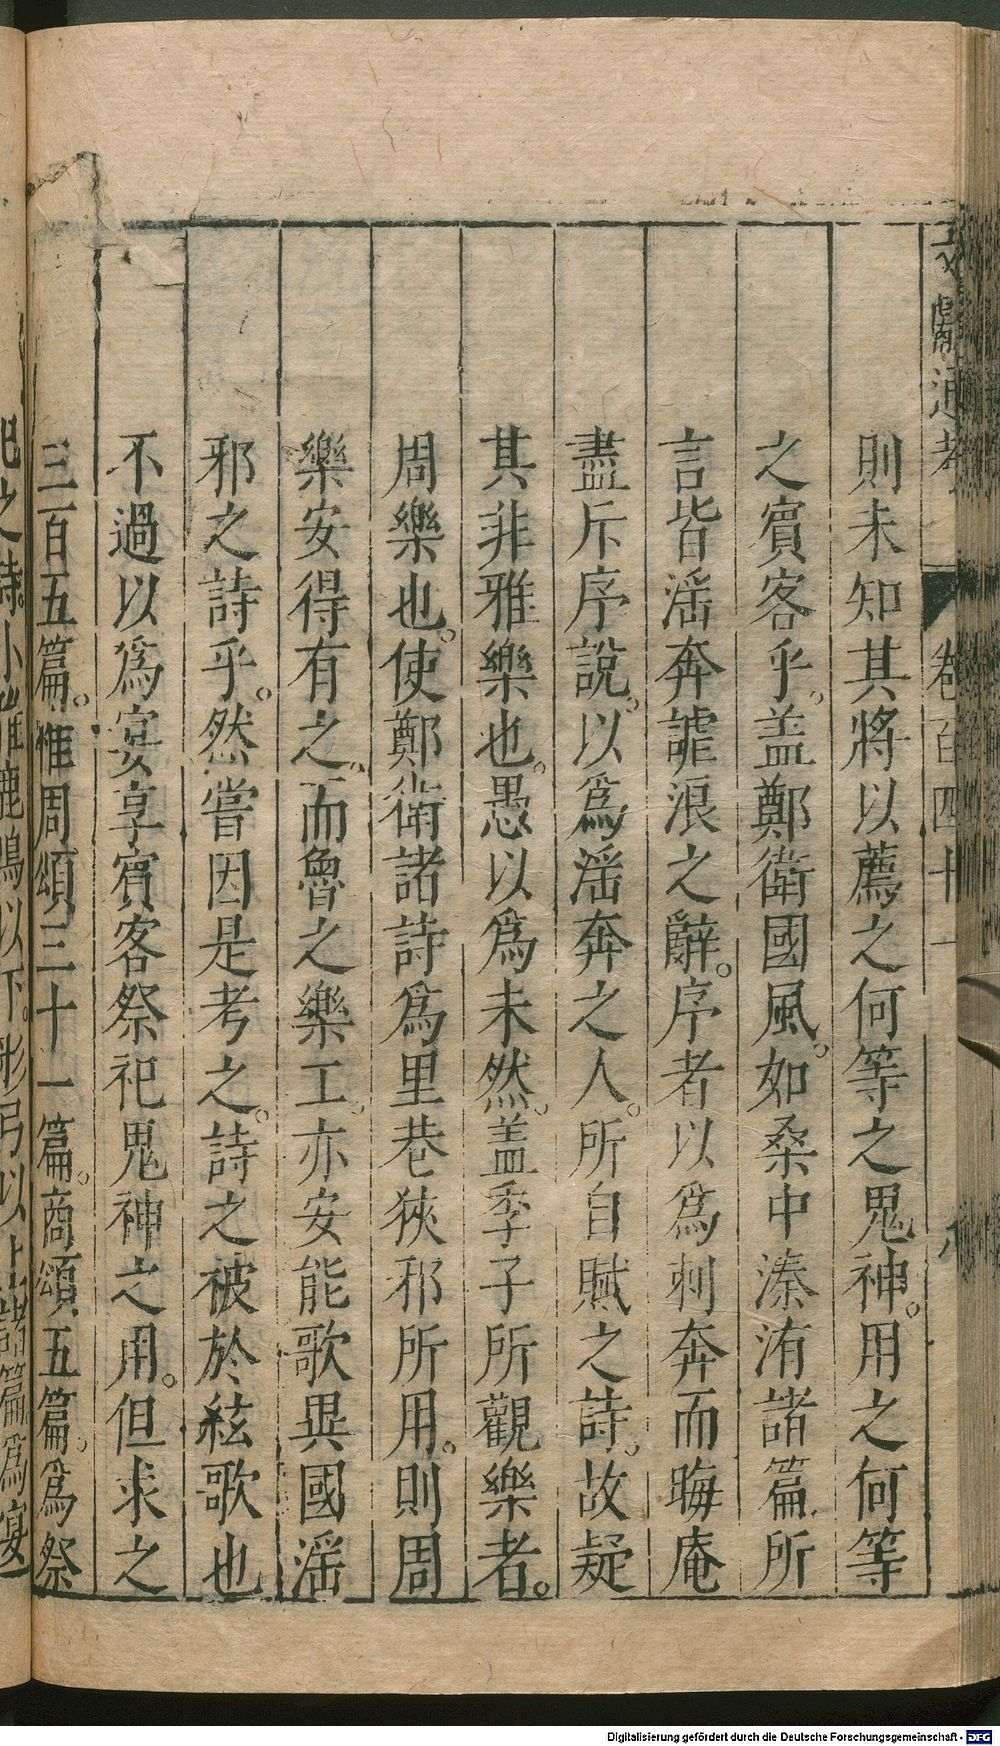 文獻通考 卷百四十一
則未知其將以薦之何等之鬼神。用之何等
之賓客乎。盖鄭衛國風。如桑中溱洧諸篇所
言皆滛奔謔浪之辭。序者以爲刺奔而晦庵
盡斥序說。以爲滛奔之人。所自賦之詩。故疑
其非雅樂也。愚以爲未然。盖季子所觀樂者。
周樂也。使鄭衛諸詩爲里巷狹邪所用。則周
樂安得有之。而魯之樂工。亦安能歌異國滛
邪之詩乎。然嘗因是考之。詩之被於絃歌也
不過以爲宴享賓客祭祀鬼神之用。但求之
三百五篇。惟周頌三十一篇。商頌五篇。爲祭
祀之詩。小雅鹿鳴以下。彤弓以上諸篇爲宴
Digitalisierung gefördert durch die Deutsche Forschungsgemeinschaft - DFG